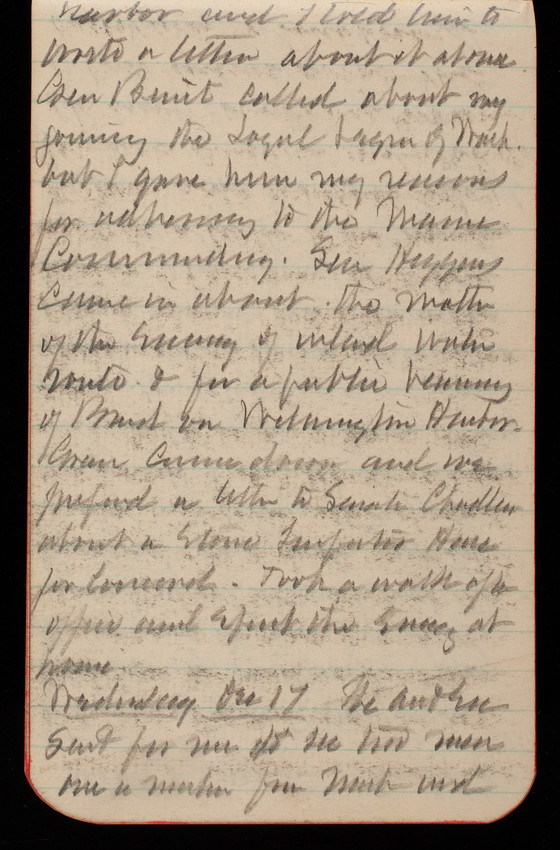 harbor and I told him to
write a letter about it alone
Gen Benet called about my
joining the Loyal Legion of Wash.
but I gave him my reasons
for adhering to the Maine
Commandery. Gen Heggers
came in about the matter
of the Survey of inland water
route & for a public hearing
of Board on Wilmington Harbor.
Green came down and we
prepared a letter to Senator Chandler
about a Stone Inspector Hou
for Concord. Took a walk after
office and spent the Evening at
home.
Wednesday Dec 17 The
sent for me to see two men
one a from and